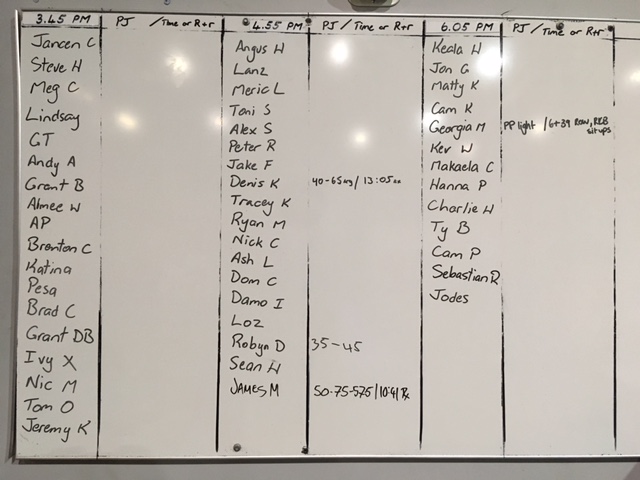 3.45 PM PJ / Time or R+r
Jancen C
Steve H
Meg C
Lindsay
GT
Andy A
Grant B
Aimee W
AP
Brenton C
Katina
Pesa
Brad C
Grant DB
Ivy X
Nic M
Tom O
Jeremy K
4.55 PM PJ / Time or R+r
Angus H
Lanz
Meric L
Toni S
Alex S
Peter R
Jake F
Denis K 40-65kg / 13:05
Tracey K
Ryan M
Nick C
Ash L
Dom C
Damo I
Loz
Robyn D 35-45
Sean H
JAMES M 50-75-575 / 10:41 Rx
6.05 PM PJ / Time or R+r
Keala H
Jon G
Matty K
Cam K
Georgia M PP light / 6+39 ROW, REB
situps
Kev W
Makaela C
Hanna P
Charlie H
Ty B
Cam P
Sebastian R
Jodes